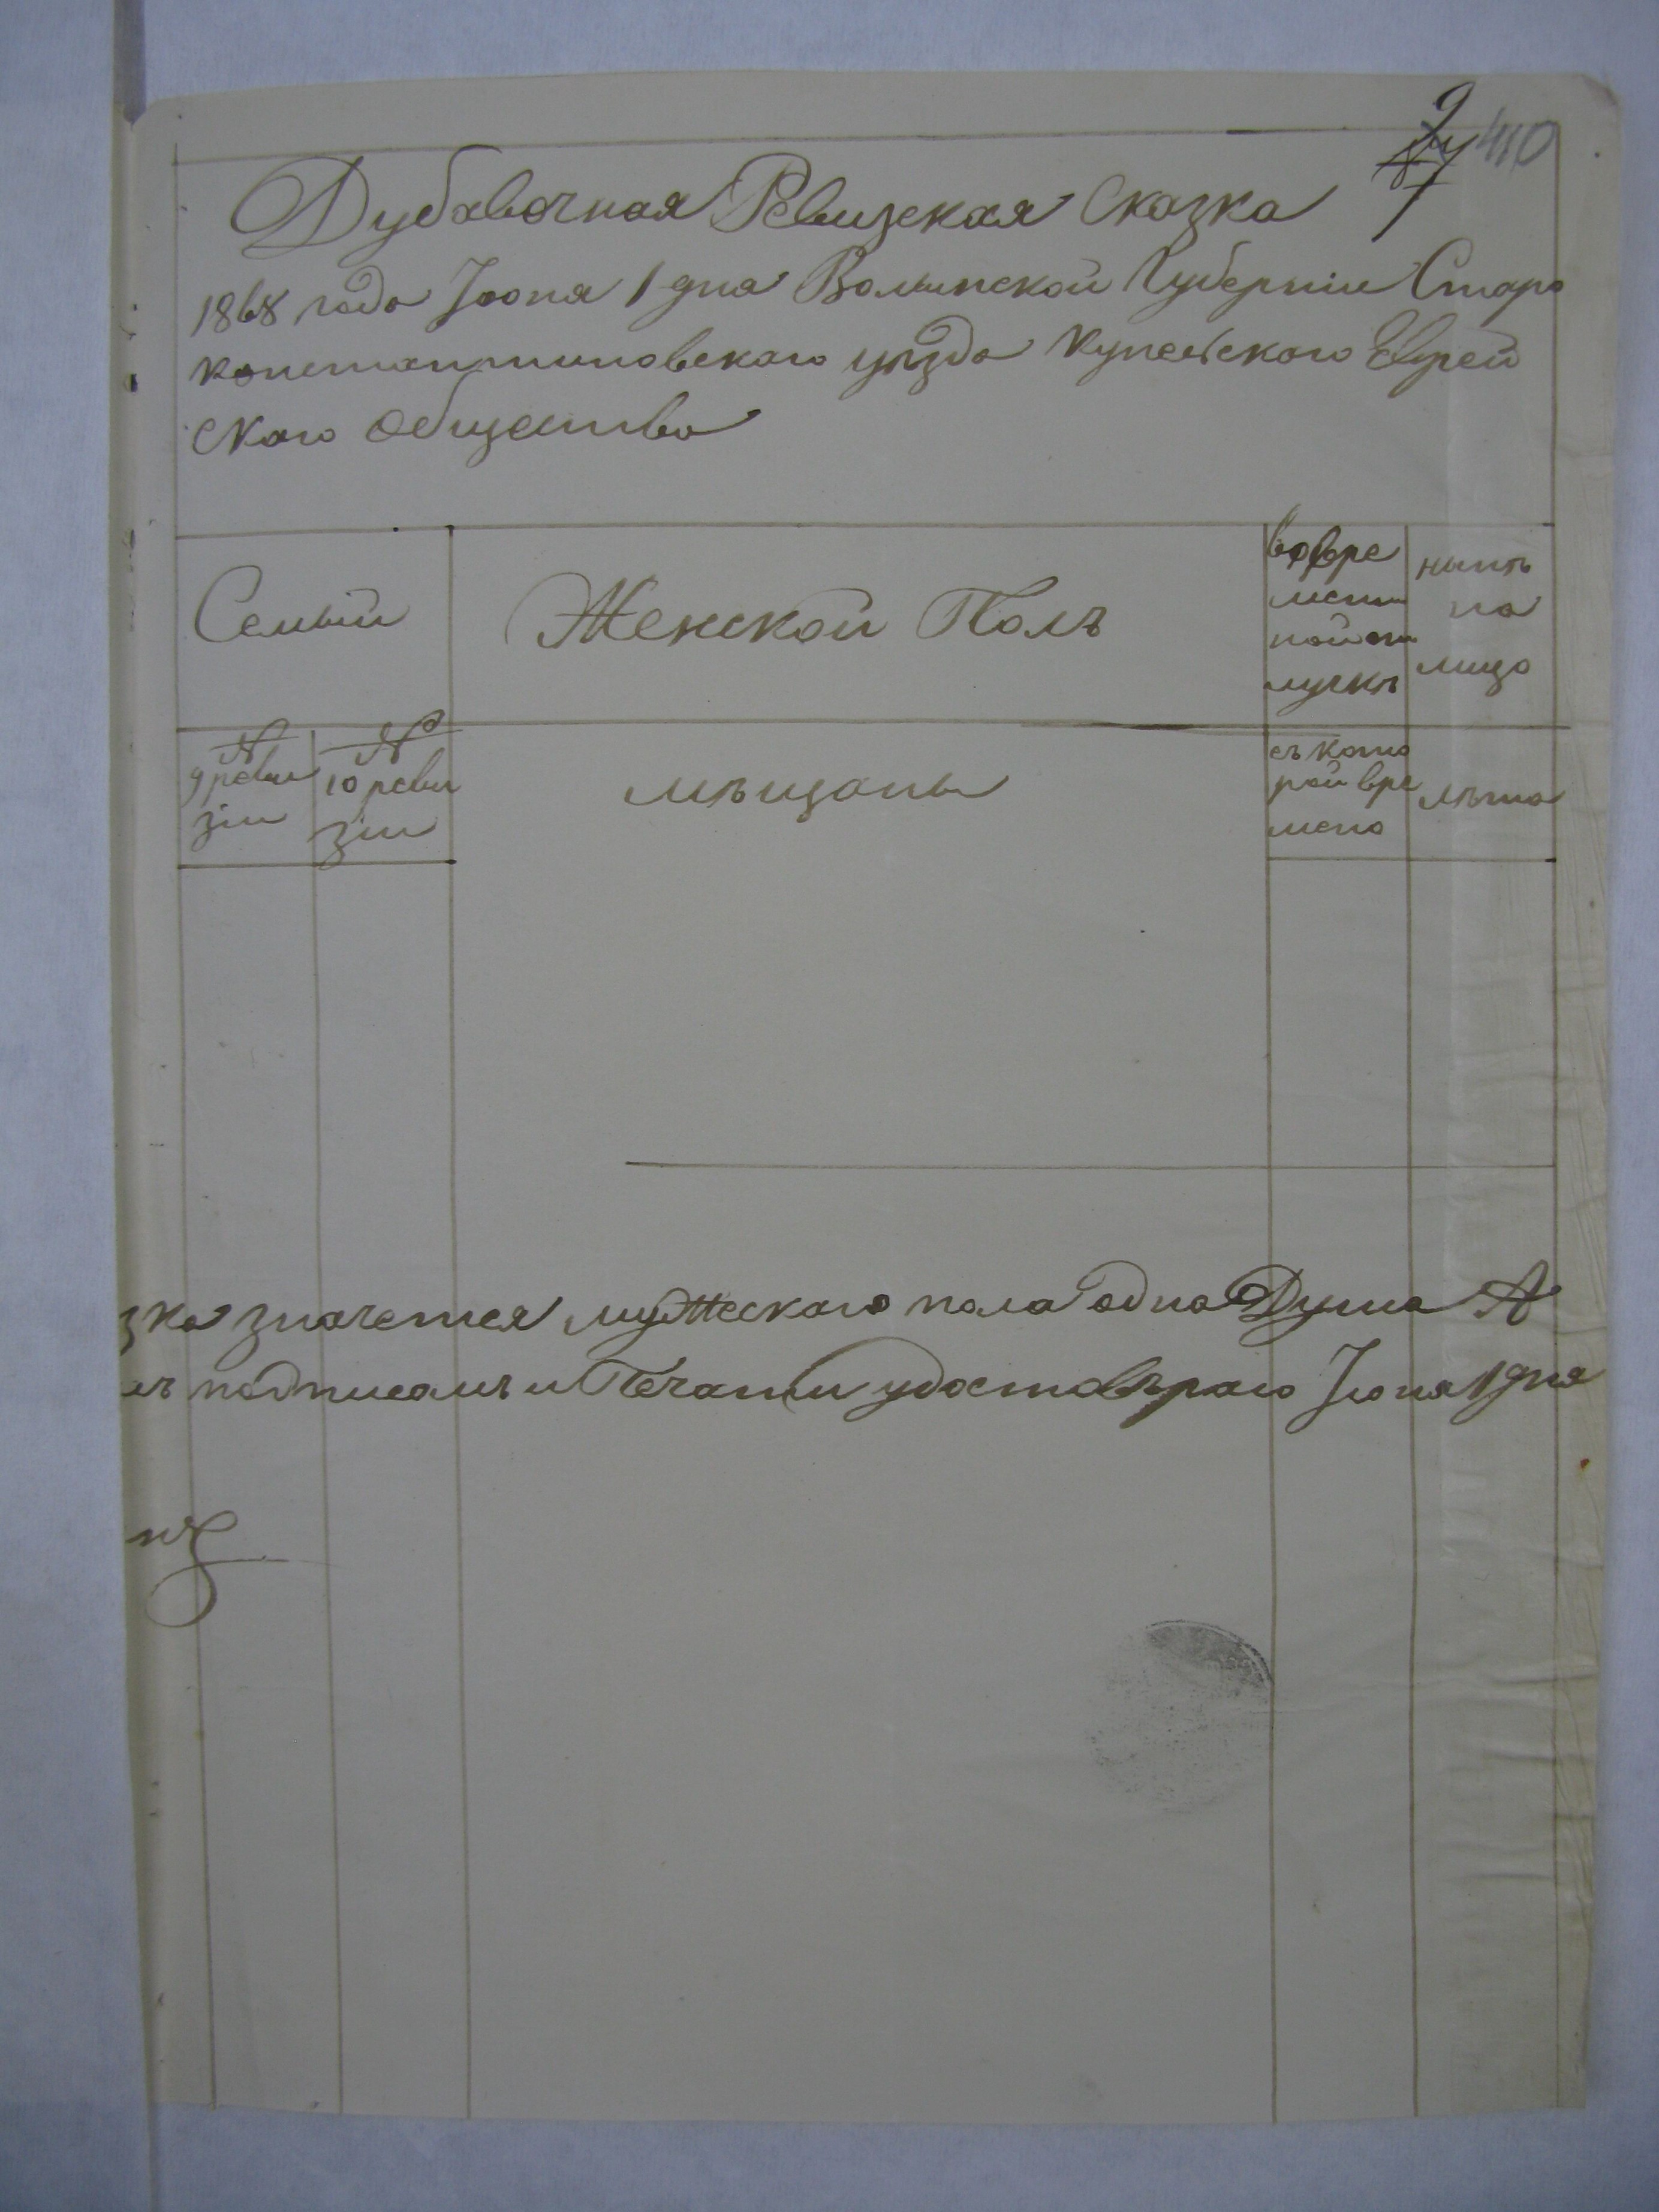 9
410
Дубавочная Ревизская Сказка
1868 года Іюня 1 дня Волынской Губерніи Старо
константиновскаго уѣзда Купельскаго Еврей
скаго Общества
Семьи
Женской Полъ
во вре
мен
ной от
лучкѣ
нынѣ
на
лицо
№
9 реви
зіи
№
10 реви
зіи
мѣщаны
съ кото
рой вре
мено
лѣта
зка значется мужескаго пола одна Душа А
мъ подписомъ и Печатии удоставѣраю Іюня 1 дня